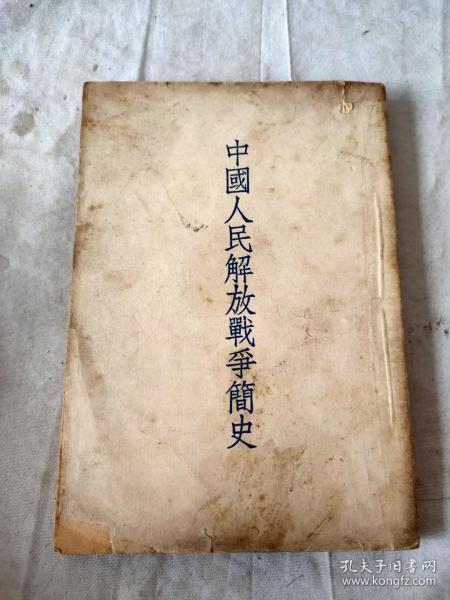 中國人民解放戰爭簡史
孔夫子旧书网
www.kongfz.com